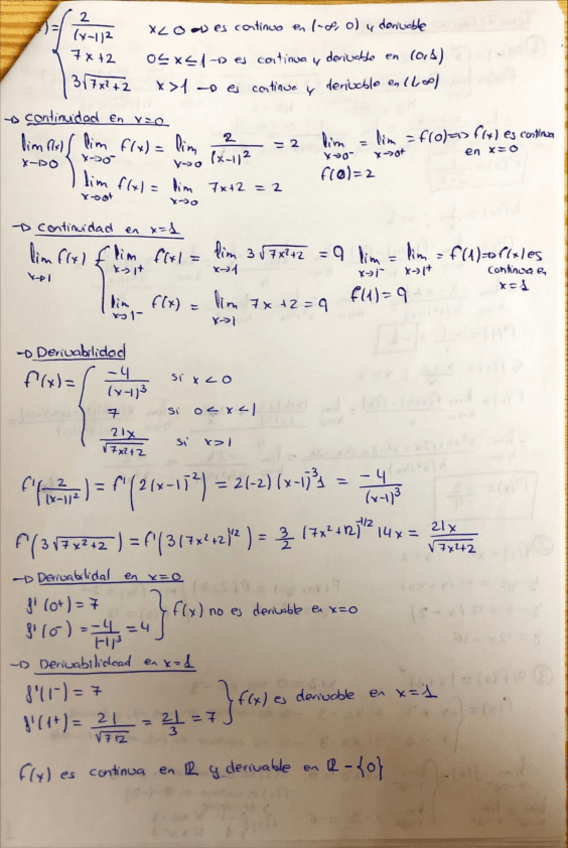 ) = { 2/(x-1)² x<0 → es continua en (-∞, 0) y derivable
7x+2 0≤x≤1 → es continua y derivable en (0,1)
3√7x²+2 x>1 → es continua y derivable en (1,∞)
→ Continuidad en x=0
lim f(x) x→0 { lim x→0⁻ f(x) = lim x→0 2/(x-1)² = 2 lim x→0⁻ = lim x→0⁺ = f(0) => f(x) es continua en x=0
lim x→0⁺ f(x) = lim x→0 7x+2 = 2 f(0)=2
→ Continuidad en x=1
lim f(x) x→1 { lim x→1⁺ f(x) = lim x→1 3√7x²+2 = 9 lim x→1⁻ = lim x→1⁺ = f(1) => f(x) es continua en x=1
lim x→1⁻ f(x) = lim x→1 7x+2 = 9 f(1)=9
→ Derivabilidad
f'(x) = { -4/(x-1)³ si x<0
7 si 0<x<1
21x/√7x²+2 si x>1
f'(2/(x-1)²) = f'(2(x-1)⁻²) = 2(-2)(x-1)⁻³1 = -4/(x-1)³
f'(3√7x²+2) = f'(3(7x²+2)^1/2) = 3/2 (7x²+12)^-1/2 14x = 21x/√7x²+2
→ Derivabilidad en x=0
f'(0⁺) = 7
f'(0⁻) = -4/(-1)³ = 4 } f(x) no es derivable en x=0
→ Derivabilidad en x=1
f'(1⁻) = 7
f'(1⁺) = 21/√712 = 21/3 = 7 } f(x) es derivable en x=1
f(x) es continua en ℝ y derivable en ℝ-{0}